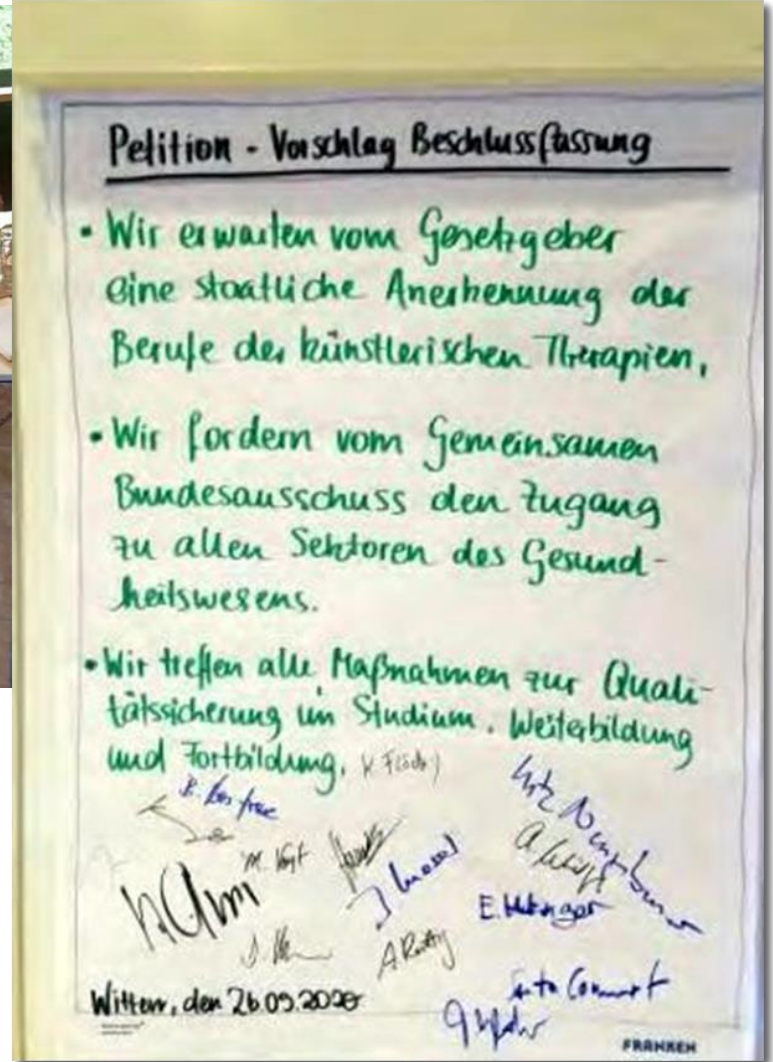 Petition - Vorschlag Beschlussfassung
• Wir erwarten vom Gesetzgeber
eine staatliche Anerkennung der
Berufe der künstlerischen Therapien.
• Wir fordern vom Gemeinsamen
Bundesausschuss den Zugang
zu allen Sektoren des Gesund-
heitswesens.
• Wir treffen alle Maßnahmen zur Quali-
tätssicherung im Studium, Weiterbildung
und Fortbildung.
M. Vogt
Witten, den 26.09.2020
FRANKEN